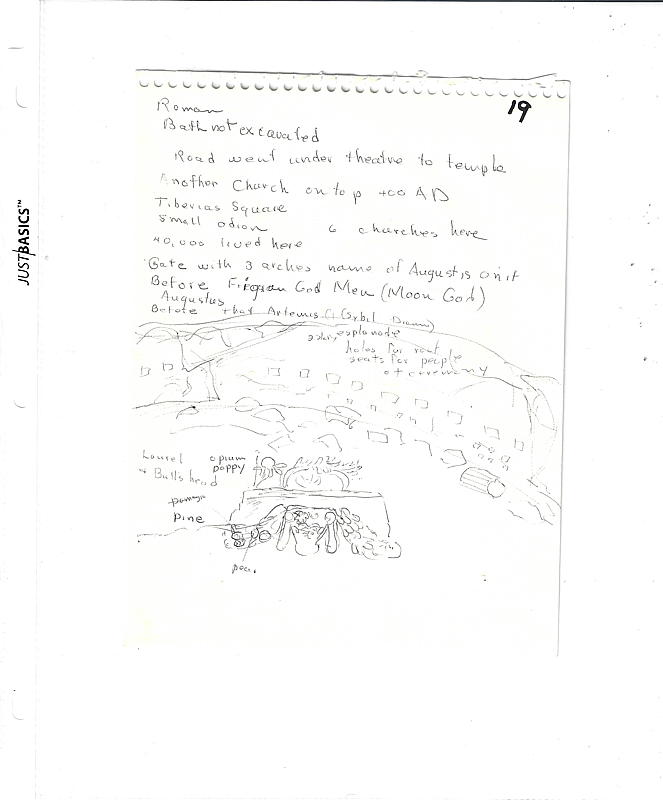 19
Roman
Bath not excavated
Road went under theatre to temple
Another Church on top 400 AD
Tiberias Square
small odion 6 churches here
40,000 lived here
Gate with 3 arches name of Augustus on it
Before Frigian God Men (Moon God)
Augustus
Before that Artemis
esplanade
holes for roof
seats for people
at ceremony
Laurel opium
poppy
+ Bulls head
pine
JUST BASICS™